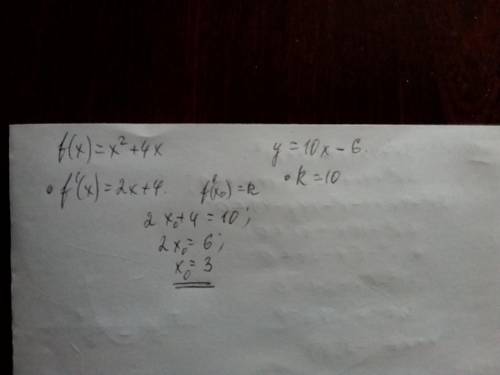 f(x)=x²+4x y=10x-6.
• f'(x)=2x+4. f'(x₀)=k • k=10
2x₀+4=10;
2x₀=6;
x₀=3